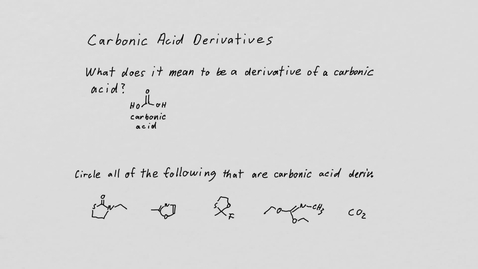 Carbonic Acid Derivatives
What does it mean to be a derivative of a carbonic
acid?
O
HO OH
carbonic
acid
Circle all of the following that are carbonic acid deriv.
O
S N N O S O F O N-CH3 O CO2